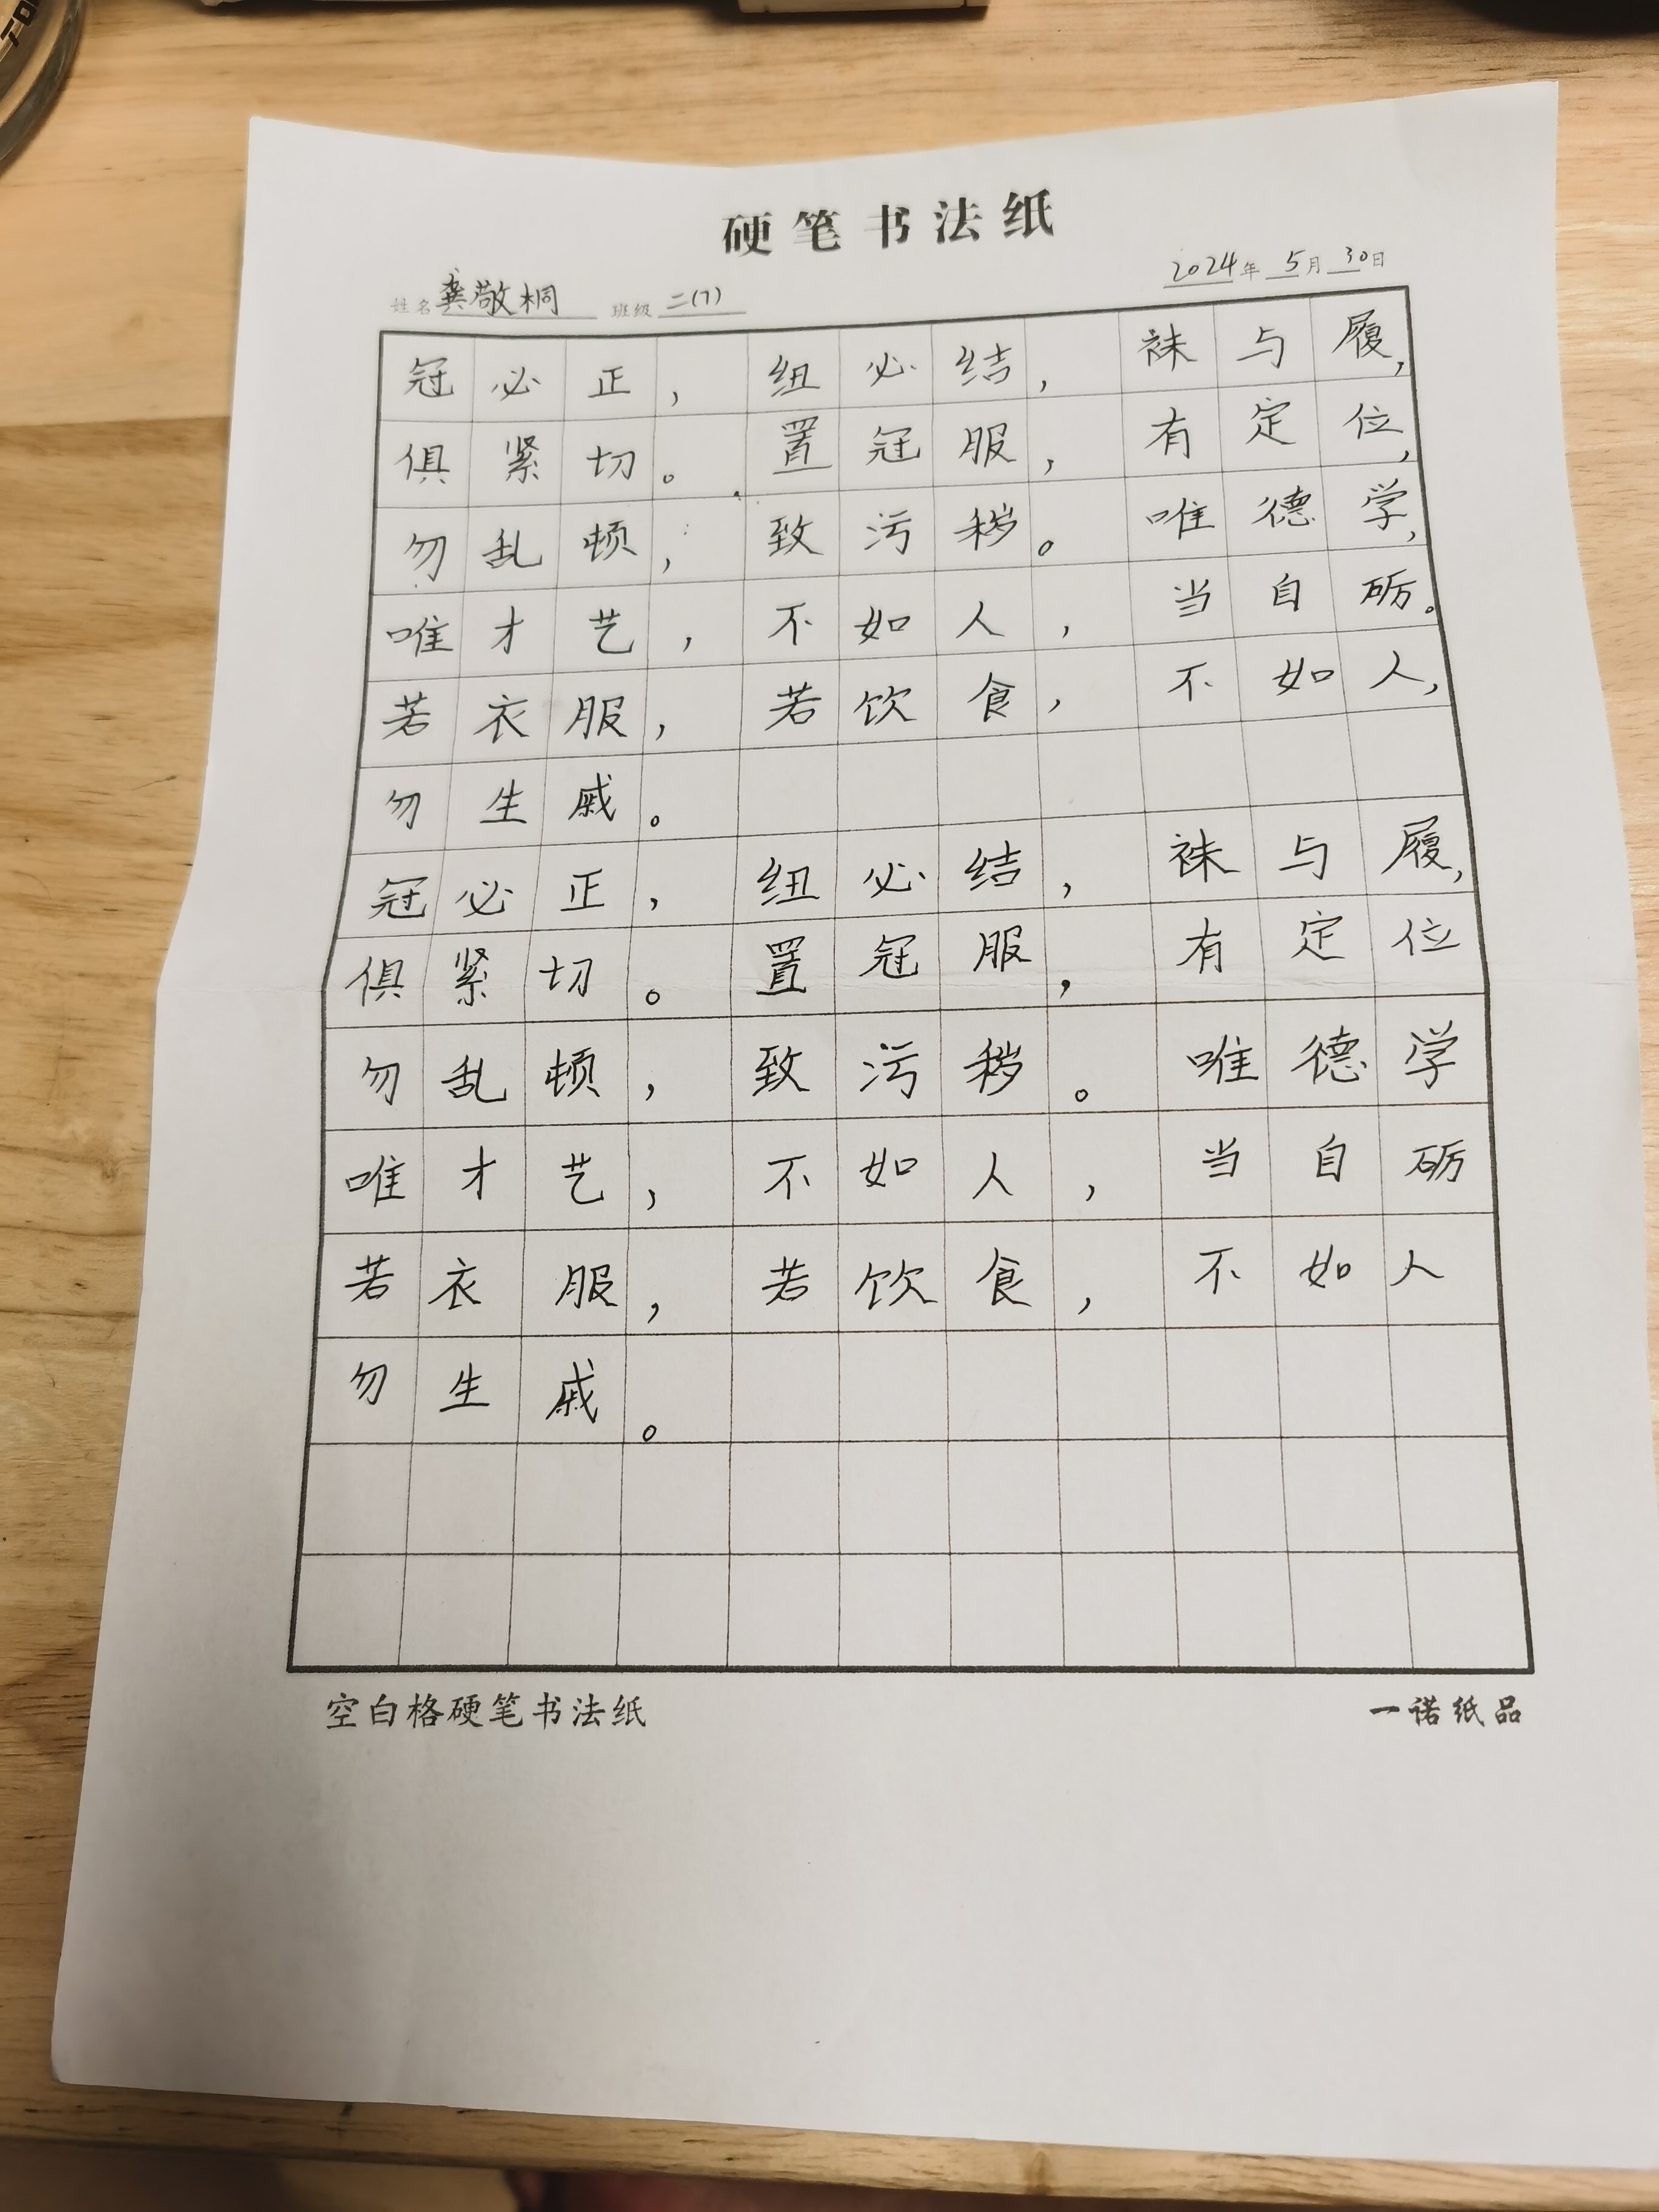 硬笔书法纸
姓名 龚敬桐 班级 二(7) 2024年5月30日
冠必正，纽必结，袜与履，
俱紧切。置冠服，有定位，
勿乱顿，致污秽。唯德学，
唯才艺，不如人，当自砺。
若衣服，若饮食，不如人，
勿生戚。
冠必正，纽必结，袜与履，
俱紧切。置冠服，有定位
勿乱顿，致污秽。唯德学
唯才艺，不如人，当自砺
若衣服，若饮食，不如人
勿生戚。
空白格硬笔书法纸 一诺纸品